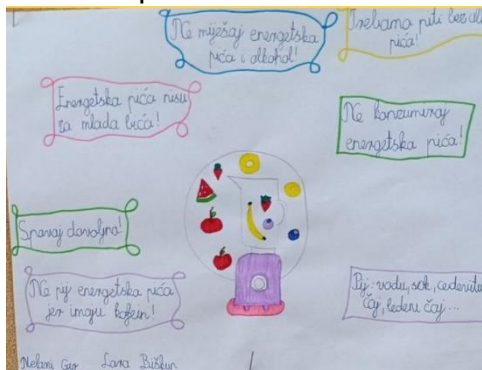 Ne miješaj energetska
pića i alkohol!
Trebamo piti
pića!
Energetska pića nisu
za mlada bića!
Ne konzumiraj
energetska pića!
Spavaj dovoljno!
Ne pij energetska pića
jer imaju kofein!
Pij: vodu, sok, cedevitu
čaj, ledeni čaj...
Melani
Lara